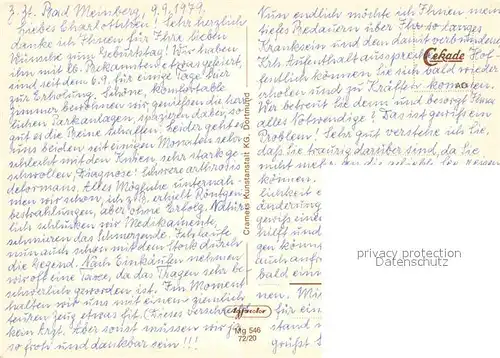 z. Zt. Bad Meinberg, 9.9.1979.
Liebes Charlottchen! Sehr herzlich
danke ich Ihnen für Ihre lieben
Wünsche zum Geburtstag! Wir haben
ihn mit 26 Bekannten etwas gefeiert,
und sind seit dem 6.9. für einige Tage hier
zur Erholung. Schöne, komfortable
Zimmer bewohnen wir, genießen die herr-
lichen Parkanlagen, spazieren dabei, so
weit es die Beine schaffen. Leider geht es
uns beiden seit einigen Monaten sehr
schlecht mit den Knien, sehr stark ge-
schwollen. Diagnose: Schwere arthrosis
deformans. Alles Mögliche unternah-
men wir schon, ich z.B. erhielt Röntgen-
bestrahlungen, aber ohne Erfolg. Natür-
lich schlucken wir Medikamente,
schmieren das Schmerzende. Ich laufe
nun auch schon mit dem Stock durch
die Gegend. Nach Einkäufen nehmen
wir oft eine Taxe, da das Tragen sehr be-
schwerlich geworden ist. Im Moment
halten wir uns mit einem ziemlich
teuren Zeug etwas fit. (Dieses verschreibt
kein Arzt. Aber sonst müssen wir ja
so froh und dankbar sein!!!
Cramers Kunstanstalt KG, Dortmund
Nun endlich möchte ich Ihnen mein
tiefes Bedauern über Ihr so langes
Kranksein und den damit verbundenen
Krh. Aufenthalt aussprechen. Hof-
Cekade
fentlich können Sie sich bald wieder
erholen und zu Kräften kommen.
Wer betreut Sie denn und besorgt Ihnen
alles Notwendige? Das ist gewiß ein
Problem! Sehr gut verstehe ich Sie,
daß Sie traurig darüber sind, da Sie
nicht mehr
können.
lichkeit
änderung
gewiß eine
hilft und
gen könn
auch an
bald ein
nen. Mi
für ein
stand
grüßt
privacy overlay
© ansichtskarten-center.de
Mg 546
72/20